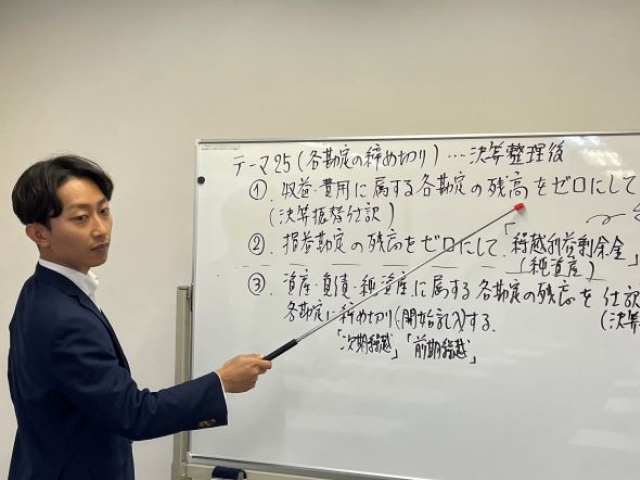 テーマ25(各勘定の締め切り)…決算整理後
①.収益・費用に属する各勘定の残高をゼロにして
(決算振替仕訳)
②.損益勘定の残高をゼロにして.「繰越利益剰余金」
(純資産)
③.資産・負債・純資産に属する各勘定の残高を 仕訳
各勘定に締め切り(開始記入)する. (決算
「次期繰越」「前期繰越」